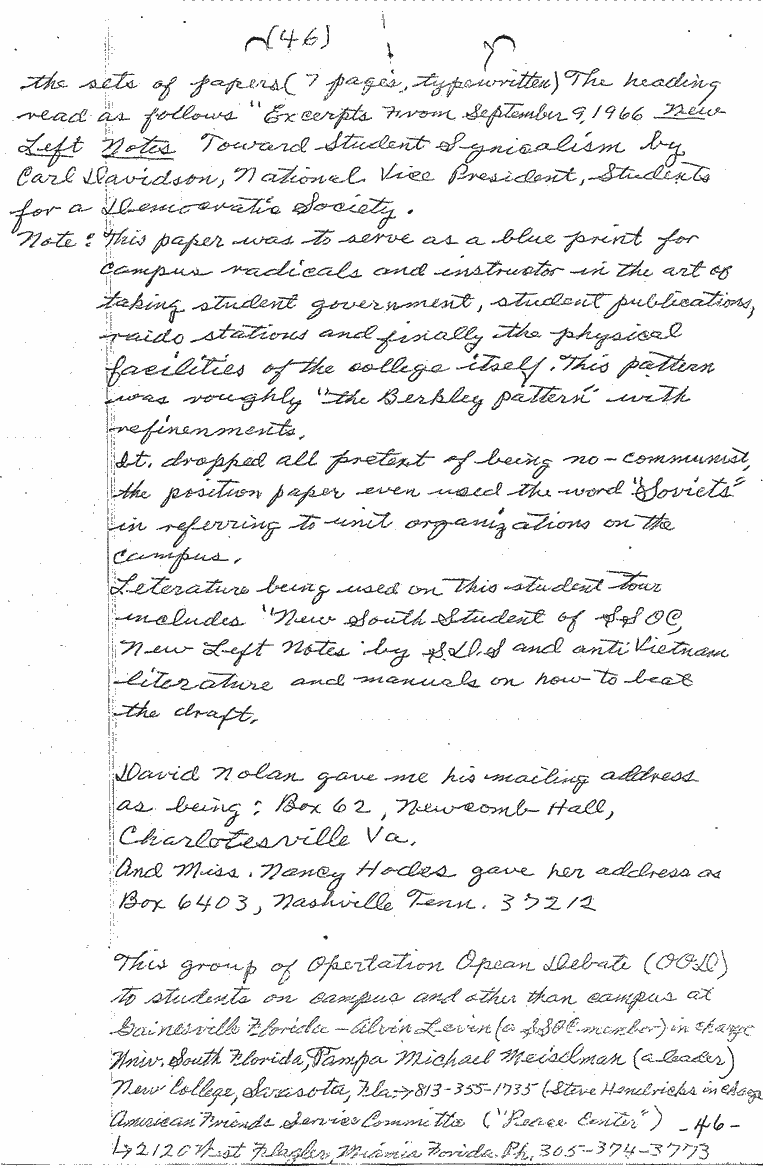 (46)
the sets of papers( 7 pages, typewritten) The heading
read as follows "Excerpts From September 9, 1966 New
Left Notes Toward Student Synicalism by
Carl Davidson, National Vice President, Students
for a Democratic Society.
Note: This paper was to serve as a blue print for
campus radicals and instructor in the art of
taking student government, student publications,
raido stations and finally the physical
facilities of the college itself. This pattern
was roughly "the Berkley pattern" with
refinenments.
It. dropped all pretext of being no-communist,
the position paper even used the word "Soviets"
in referring to unit organizations on the
campus.
Leterature being used on this student tour
includes "New South Student of SSOC,
New Left Notes by S.D.S and anti Vietnam
literature and manuals on how to beat
the draft.
David Nolan gave me his mailing address
as being: Box 62, Newcomb Hall,
Charlotesville Va.
And Miss. Nancy Hodes gave her address as
Box 6403, Nashville Tenn. 37212
This group of Opertation Opean Debate (OOD)
to students on campus and other than campus at
Gainesville Florida - Alvin Levin (a SSOC member) in charge
Univ. South Florida, Tampa Michael Meiselman (a leader)
New College, Sarasota, Fla. → 813-355-1735 (Steve Hendricks in charge
American Friends Service Committe ("Peace Center") -46-
↳ 2120 West Flagler, Miamis Florida. Ph. 305-374-3773